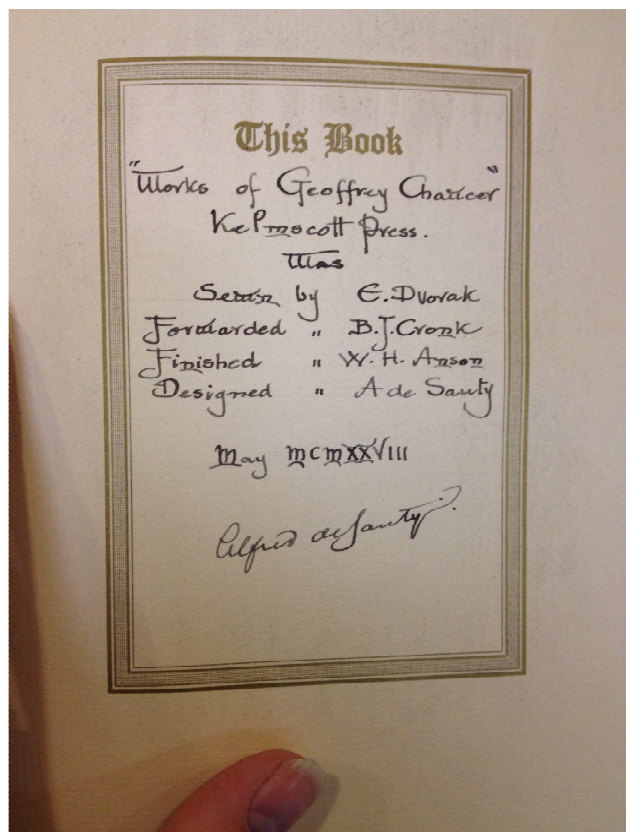 This Book
"Works of Geoffrey Chaucer"
Kelmscott Press.
Was
Sewn by E. Dvorak
Forwarded " B.J. Cronk
Finished " W. H. Anson
Designed " A de Sauty
May MCMXXVIII
Alfred de Sauty